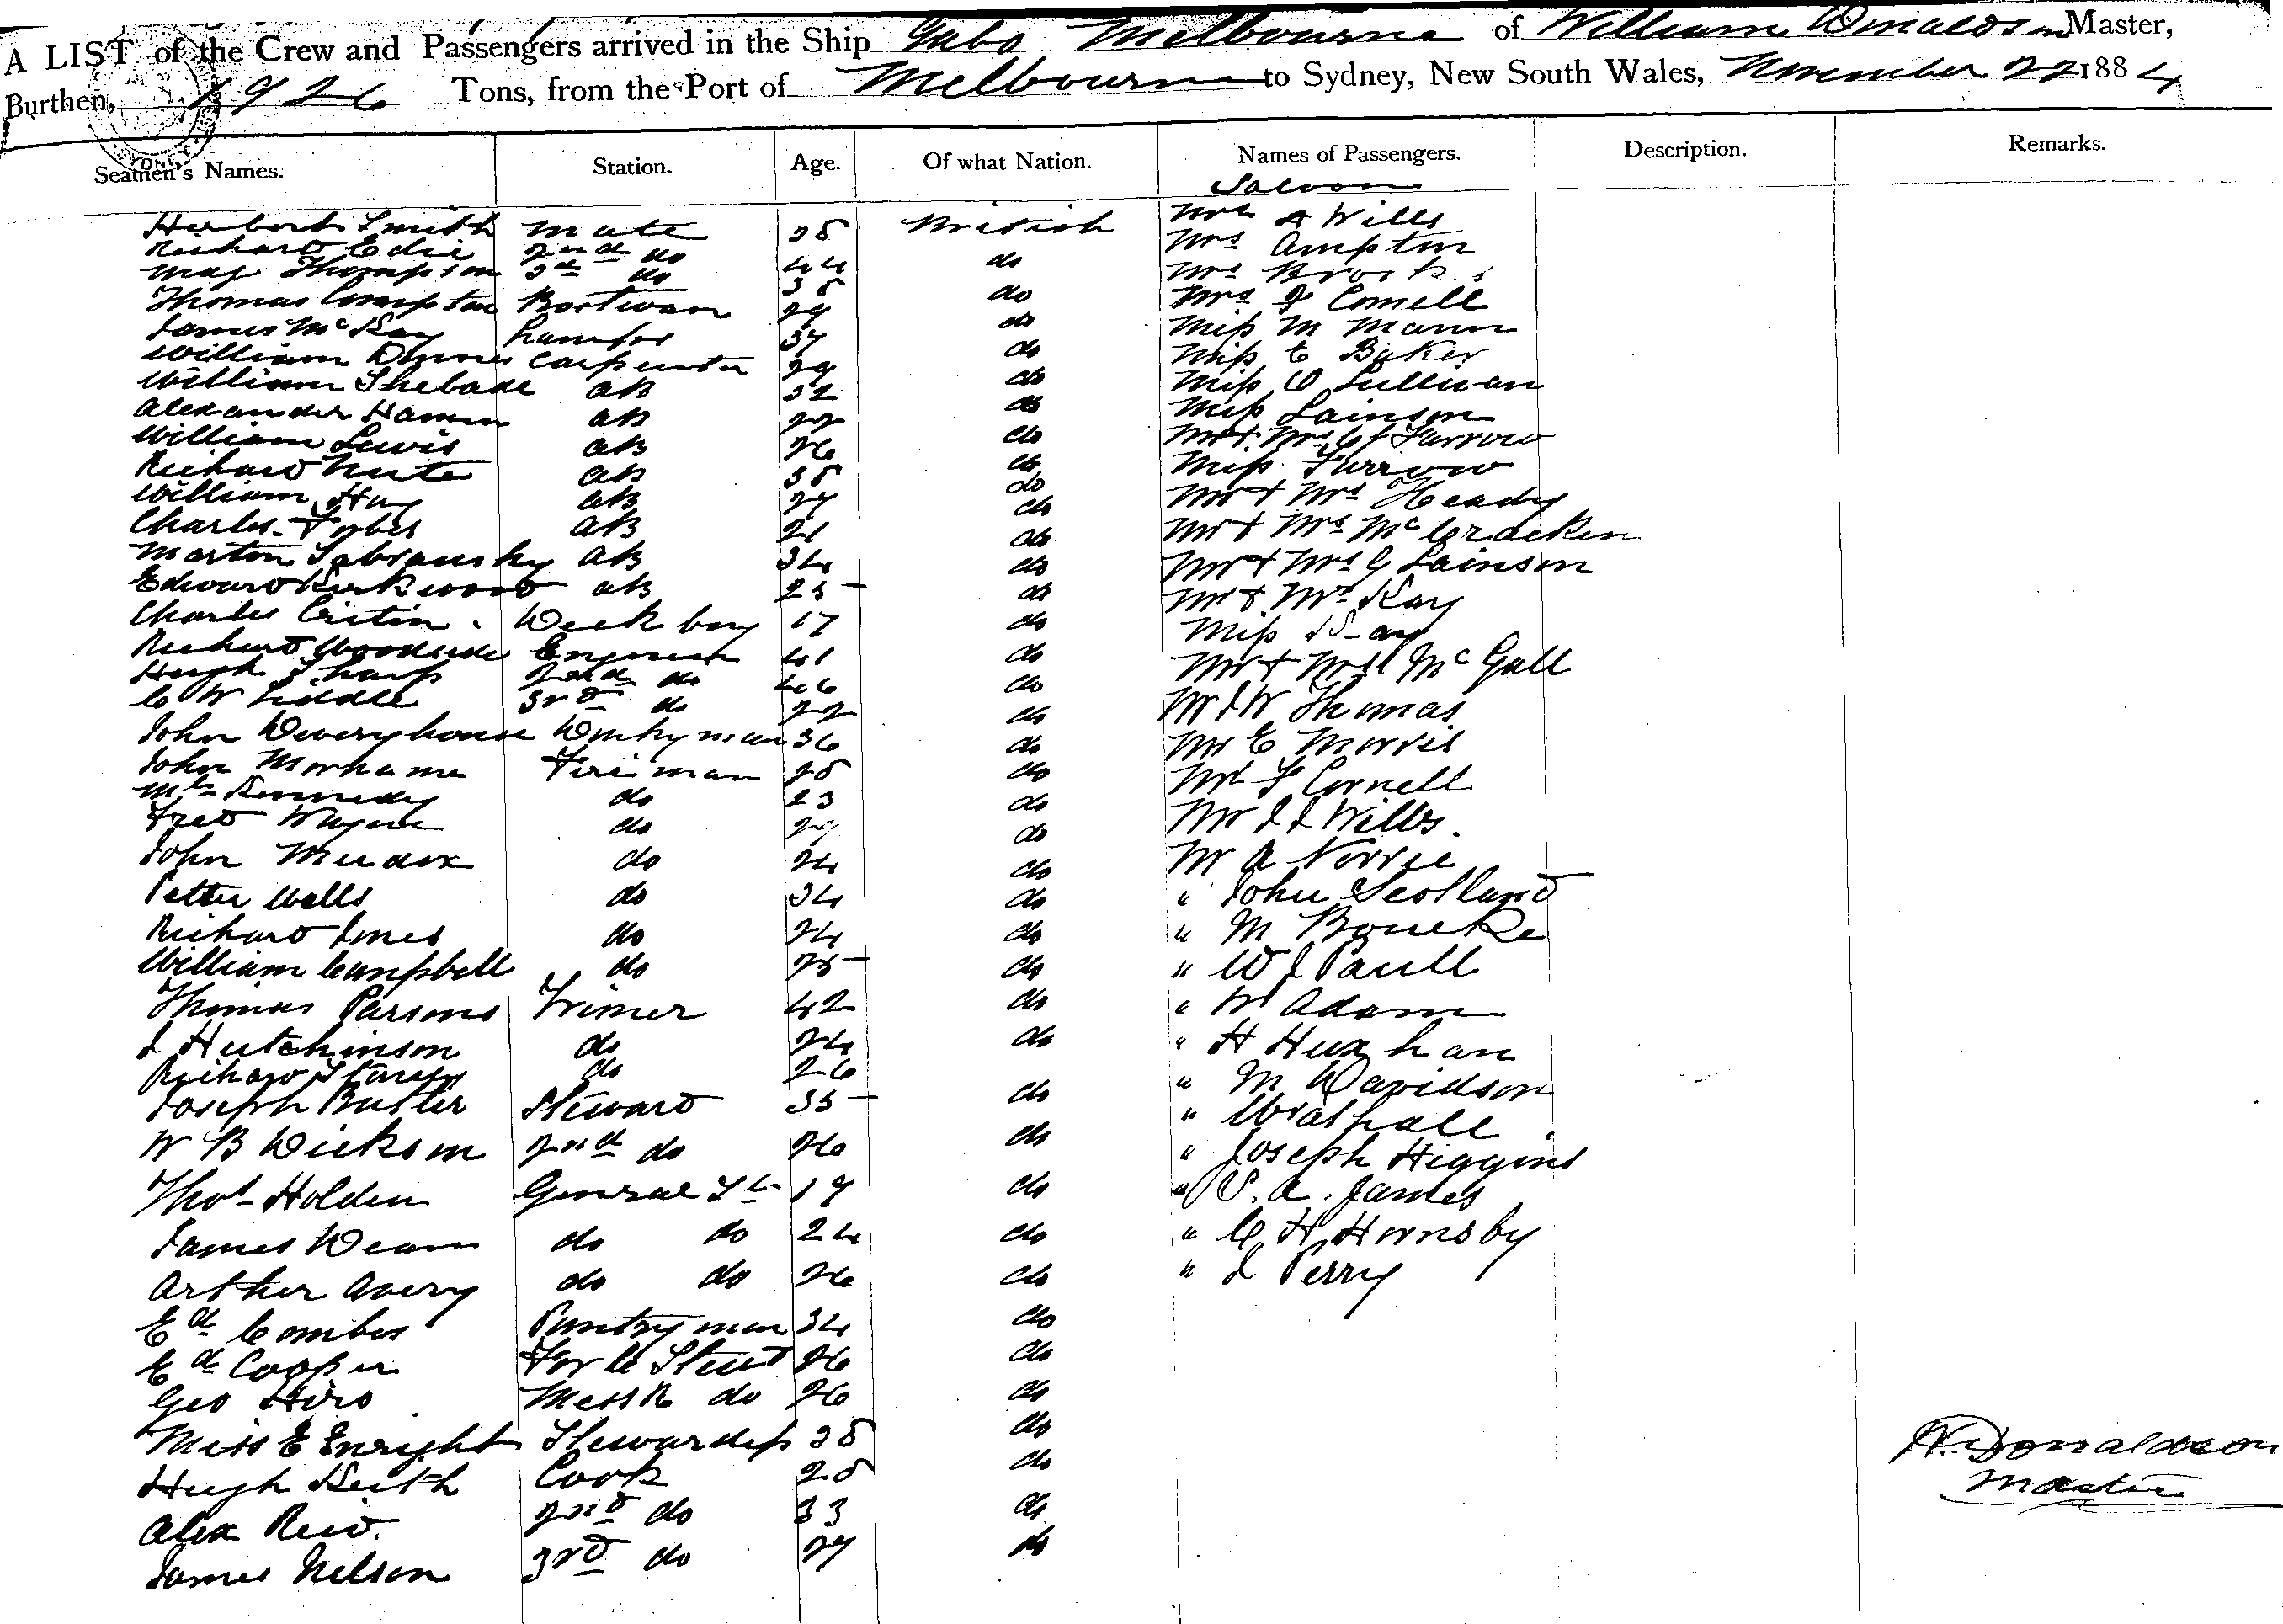 A LIST of the Crew and Passengers arrived in the Ship Gabo Melbourne of William Donaldson Master,
Burthen, 1926 Tons, from the Port of Melbourne to Sydney, New South Wales, November 22 1884
Seamen's Names. Station. Age. Of what Nation. Names of Passengers. Description. Remarks.
Saloon
Herbert Smith Mate 38 British Mrs A Wills
Richard Edie 2nd do 44 do Mrs Ampton
Thompson 3rd do 38 do Mrs Brooks
Thomas Compton 29 do Mrs F Cornell
James McKay Lamps 37 do Miss M Mann
William Carpenter 29 do Miss E Baker
William AB 32 do Miss O Sullivan
Alexander AB 22 do Miss Lainson
William Lewis AB 26 do Mr & Mrs Farrow
Richard AB 38 do Miss Farrow
William Hay AB 27 do Mr & Mrs Heady
Charles Forbes AB 21 do Mr & Mrs McCracken
Martin AB 34 do Mr & Mrs G Lainson
Edward Kirkwood AB 25 do Mr & Mrs Kay
Charles Deck boy 17 do Miss Kay
Richard Woodside Engineer 41 do Mr & Mrs McGall
Hugh Sharp 2nd do 46 do Mr J W Thomas
C W Liddle 3rd do 22 do Mr E Morris
John Donkyman 36 do Mr F Cornell
John Fireman 28 do Mr J J Wills
Kennedy do 23 do Mr A Norrie
Fred Wayne do 29 do " John Scotland
John do 24 do " M
Peter Wells do 34 do " W J Paull
Richard Jones do 24 do " W Adam
William Campbell do 25 do " H Huxham
Thomas Parsons Trimer 42 do " M Davidson
J Hutchinson do 24 do " Wrathall
Richard do 26 " Joseph Higgins
Joseph Butler Steward 35 do " P. A. James
W B Dickson 2nd do 26 do " C H Hornsby
Thos Holden General St 19 do " J Perry
James Dean do do 24 do
Arther Avery do do 26 do
Ed Combes Pantryman 34 do
Ed Cooper 26 do
Geo Mess R do 26 do
Miss E Enright Stewardess 38 do
Hugh Keith Cook 28 do
Alex Reid 2nd do 33 do
James Nelson 3rd do 27 do
W. Donaldson
Master